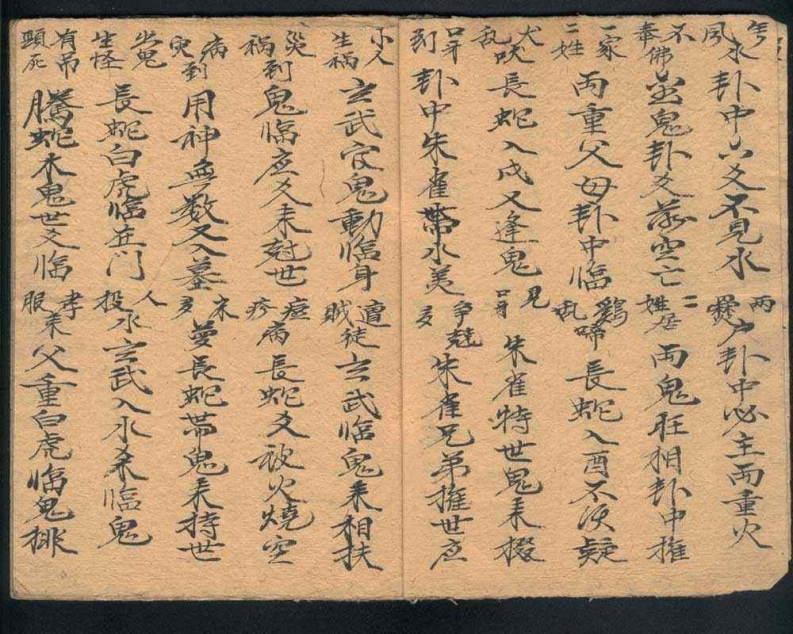 風水卦中六爻不見水 两 入卦中必主两重火
不奉佛 金鬼卦爻落空亡 二姓居 两鬼旺相卦中摧
一家二姓 两重父母卦中临 鷄啼乱 長蛇入酉不須疑
犬吠乱 長蛇入戌又逢鬼 見口牙 朱雀持世鬼来掇
口牙到 卦中朱雀帶水美 争競多 朱雀兄弟摧世应
小人生禍 玄武官鬼動临身 遭賊徒 玄武临鬼来相扶
災禍到 鬼临应爻来尅世 痘疹病 長蛇爻被火燒空
病灾到 用神無数又入墓 来多夢 長蛇帶鬼来持世
坐鬼生怪 長蛇白虎临丑门 人投水 玄武入水来临鬼
有吊頸死 螣蛇木鬼世爻临 孝服来 父重白虎临鬼排